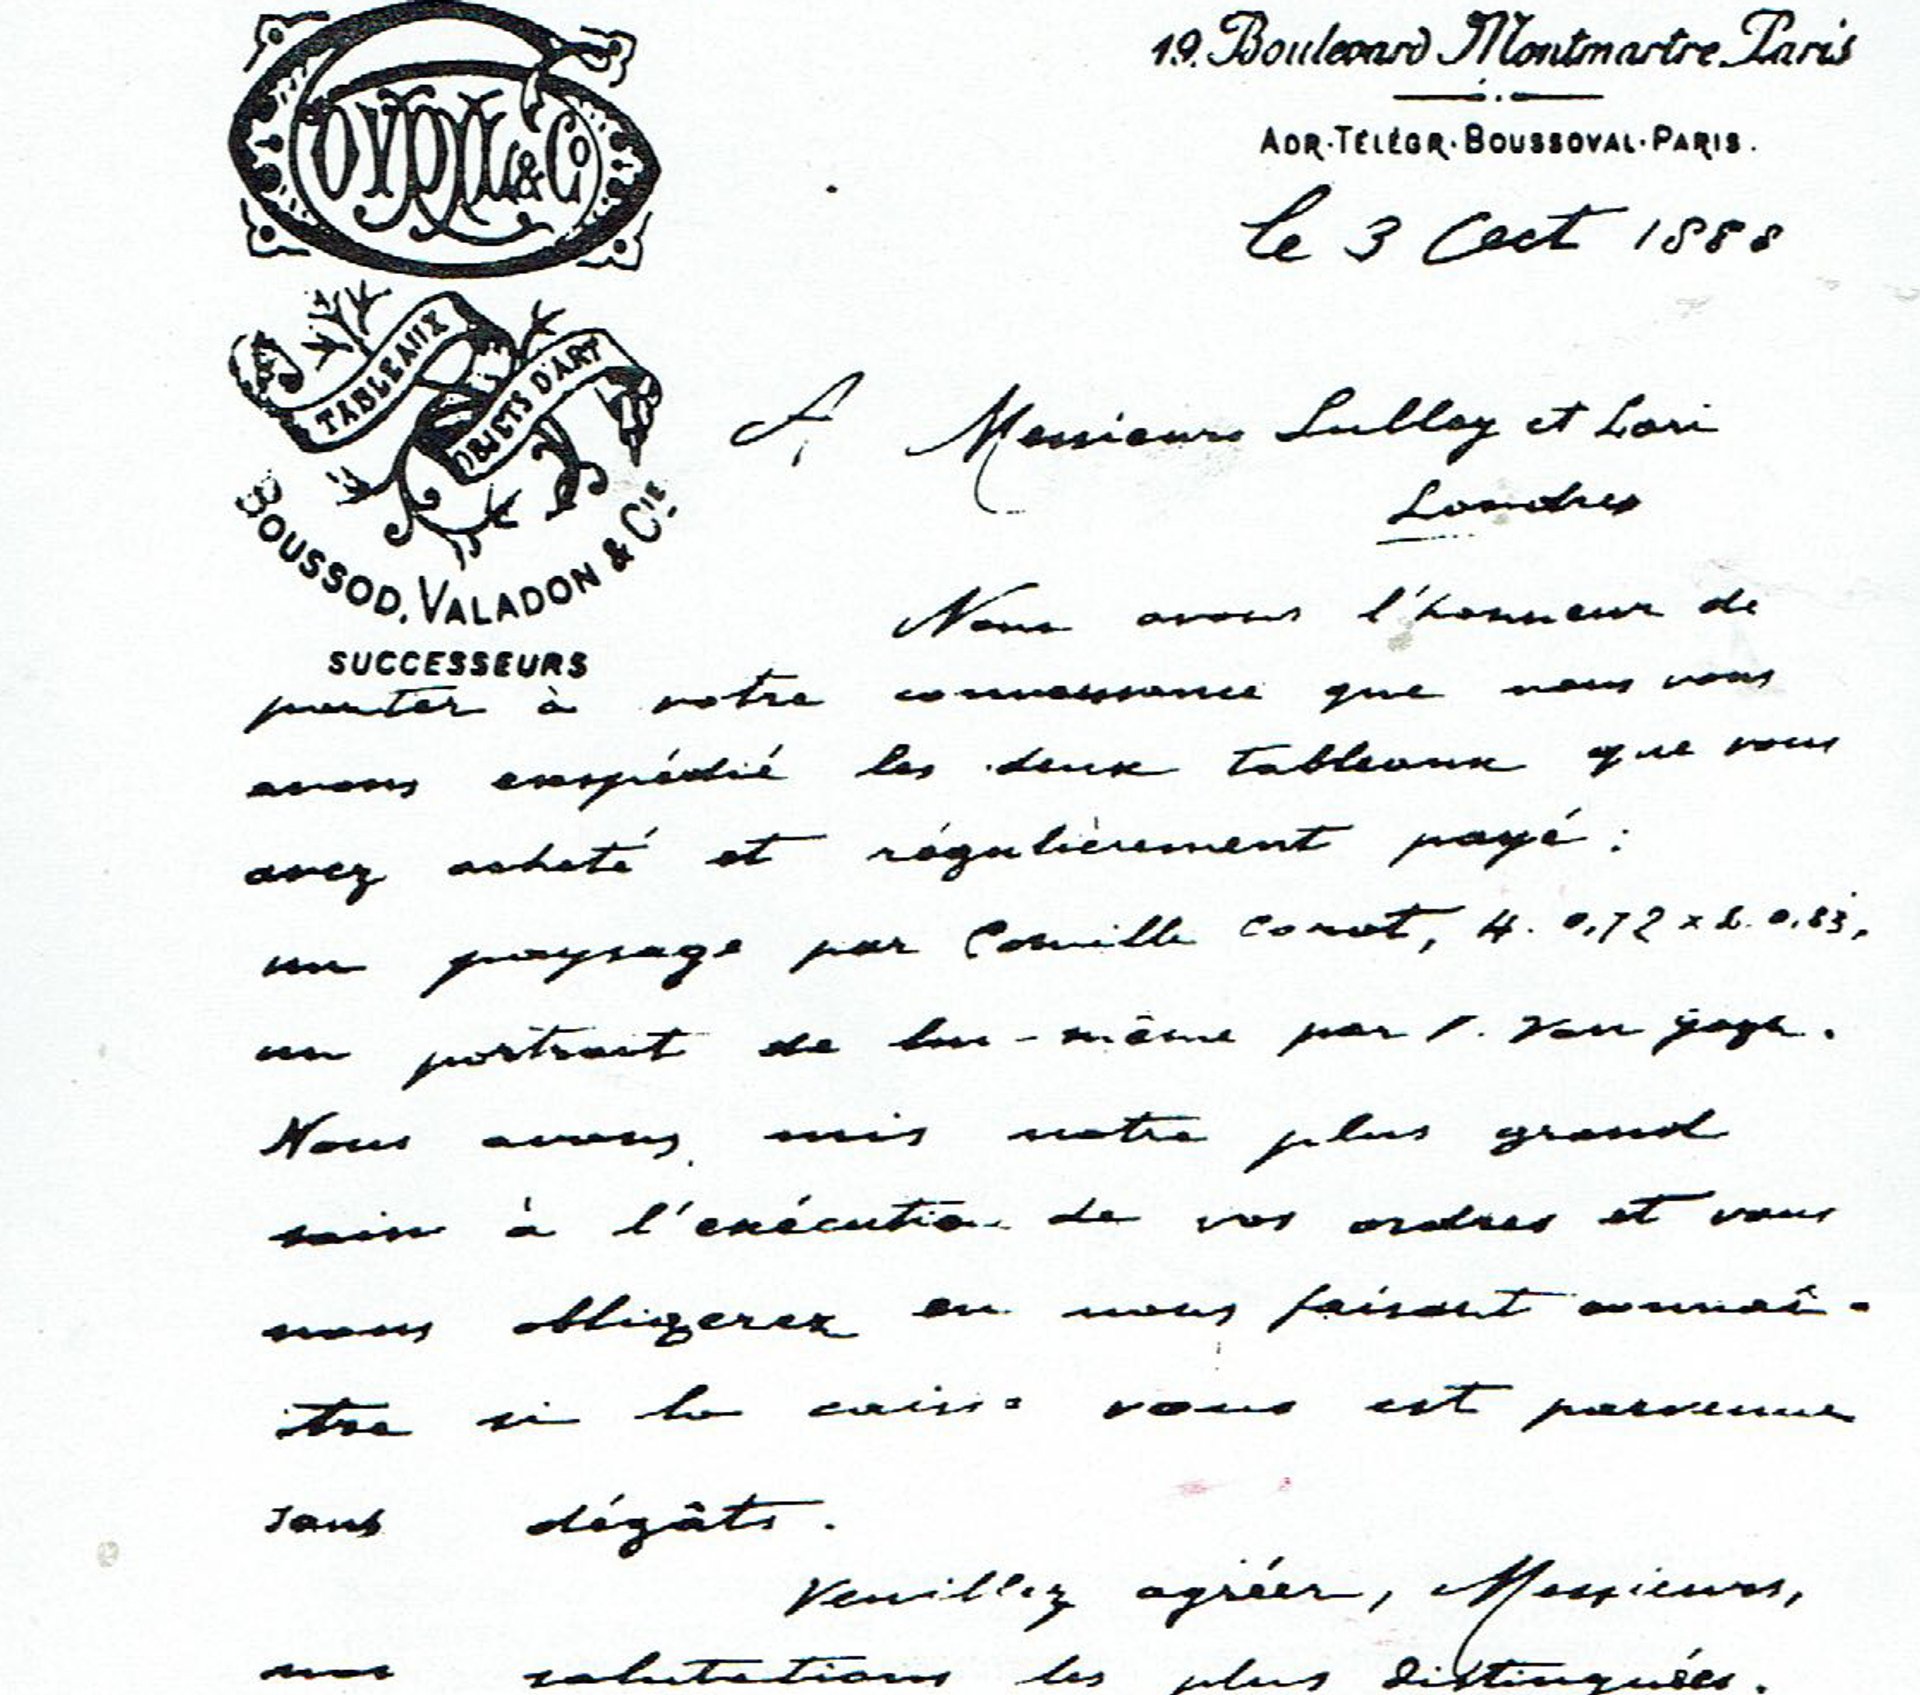 GOUPIL & Co
TABLEAUX
OBJETS D'ART
BOUSSOD, VALADON & CIE.
SUCCESSEURS
19. Boulevard Montmartre. Paris
ADR. TÉLÉGR. BOUSSOVAL. PARIS.
le 3 Oct 1888
A Messieurs Sulley et Lori
Londres
Nous avons l'honneur de
porter à votre connaissance que nous vous
avons expédié les deux tableaux que vous
avez acheté et régulièrement payé :
un paysage par Camille Corot, H. 0,72 x L. 0,83,
un portrait de lui-même par V. Van Gogh.
Nous avons mis notre plus grand
soin à l'exécution de vos ordres et vous
nous obligerez en nous faisant connaî-
tre si la caisse vous est parvenue
sans dégâts.
Veuillez agréer, Messieurs,
nos salutations les plus distinguées.